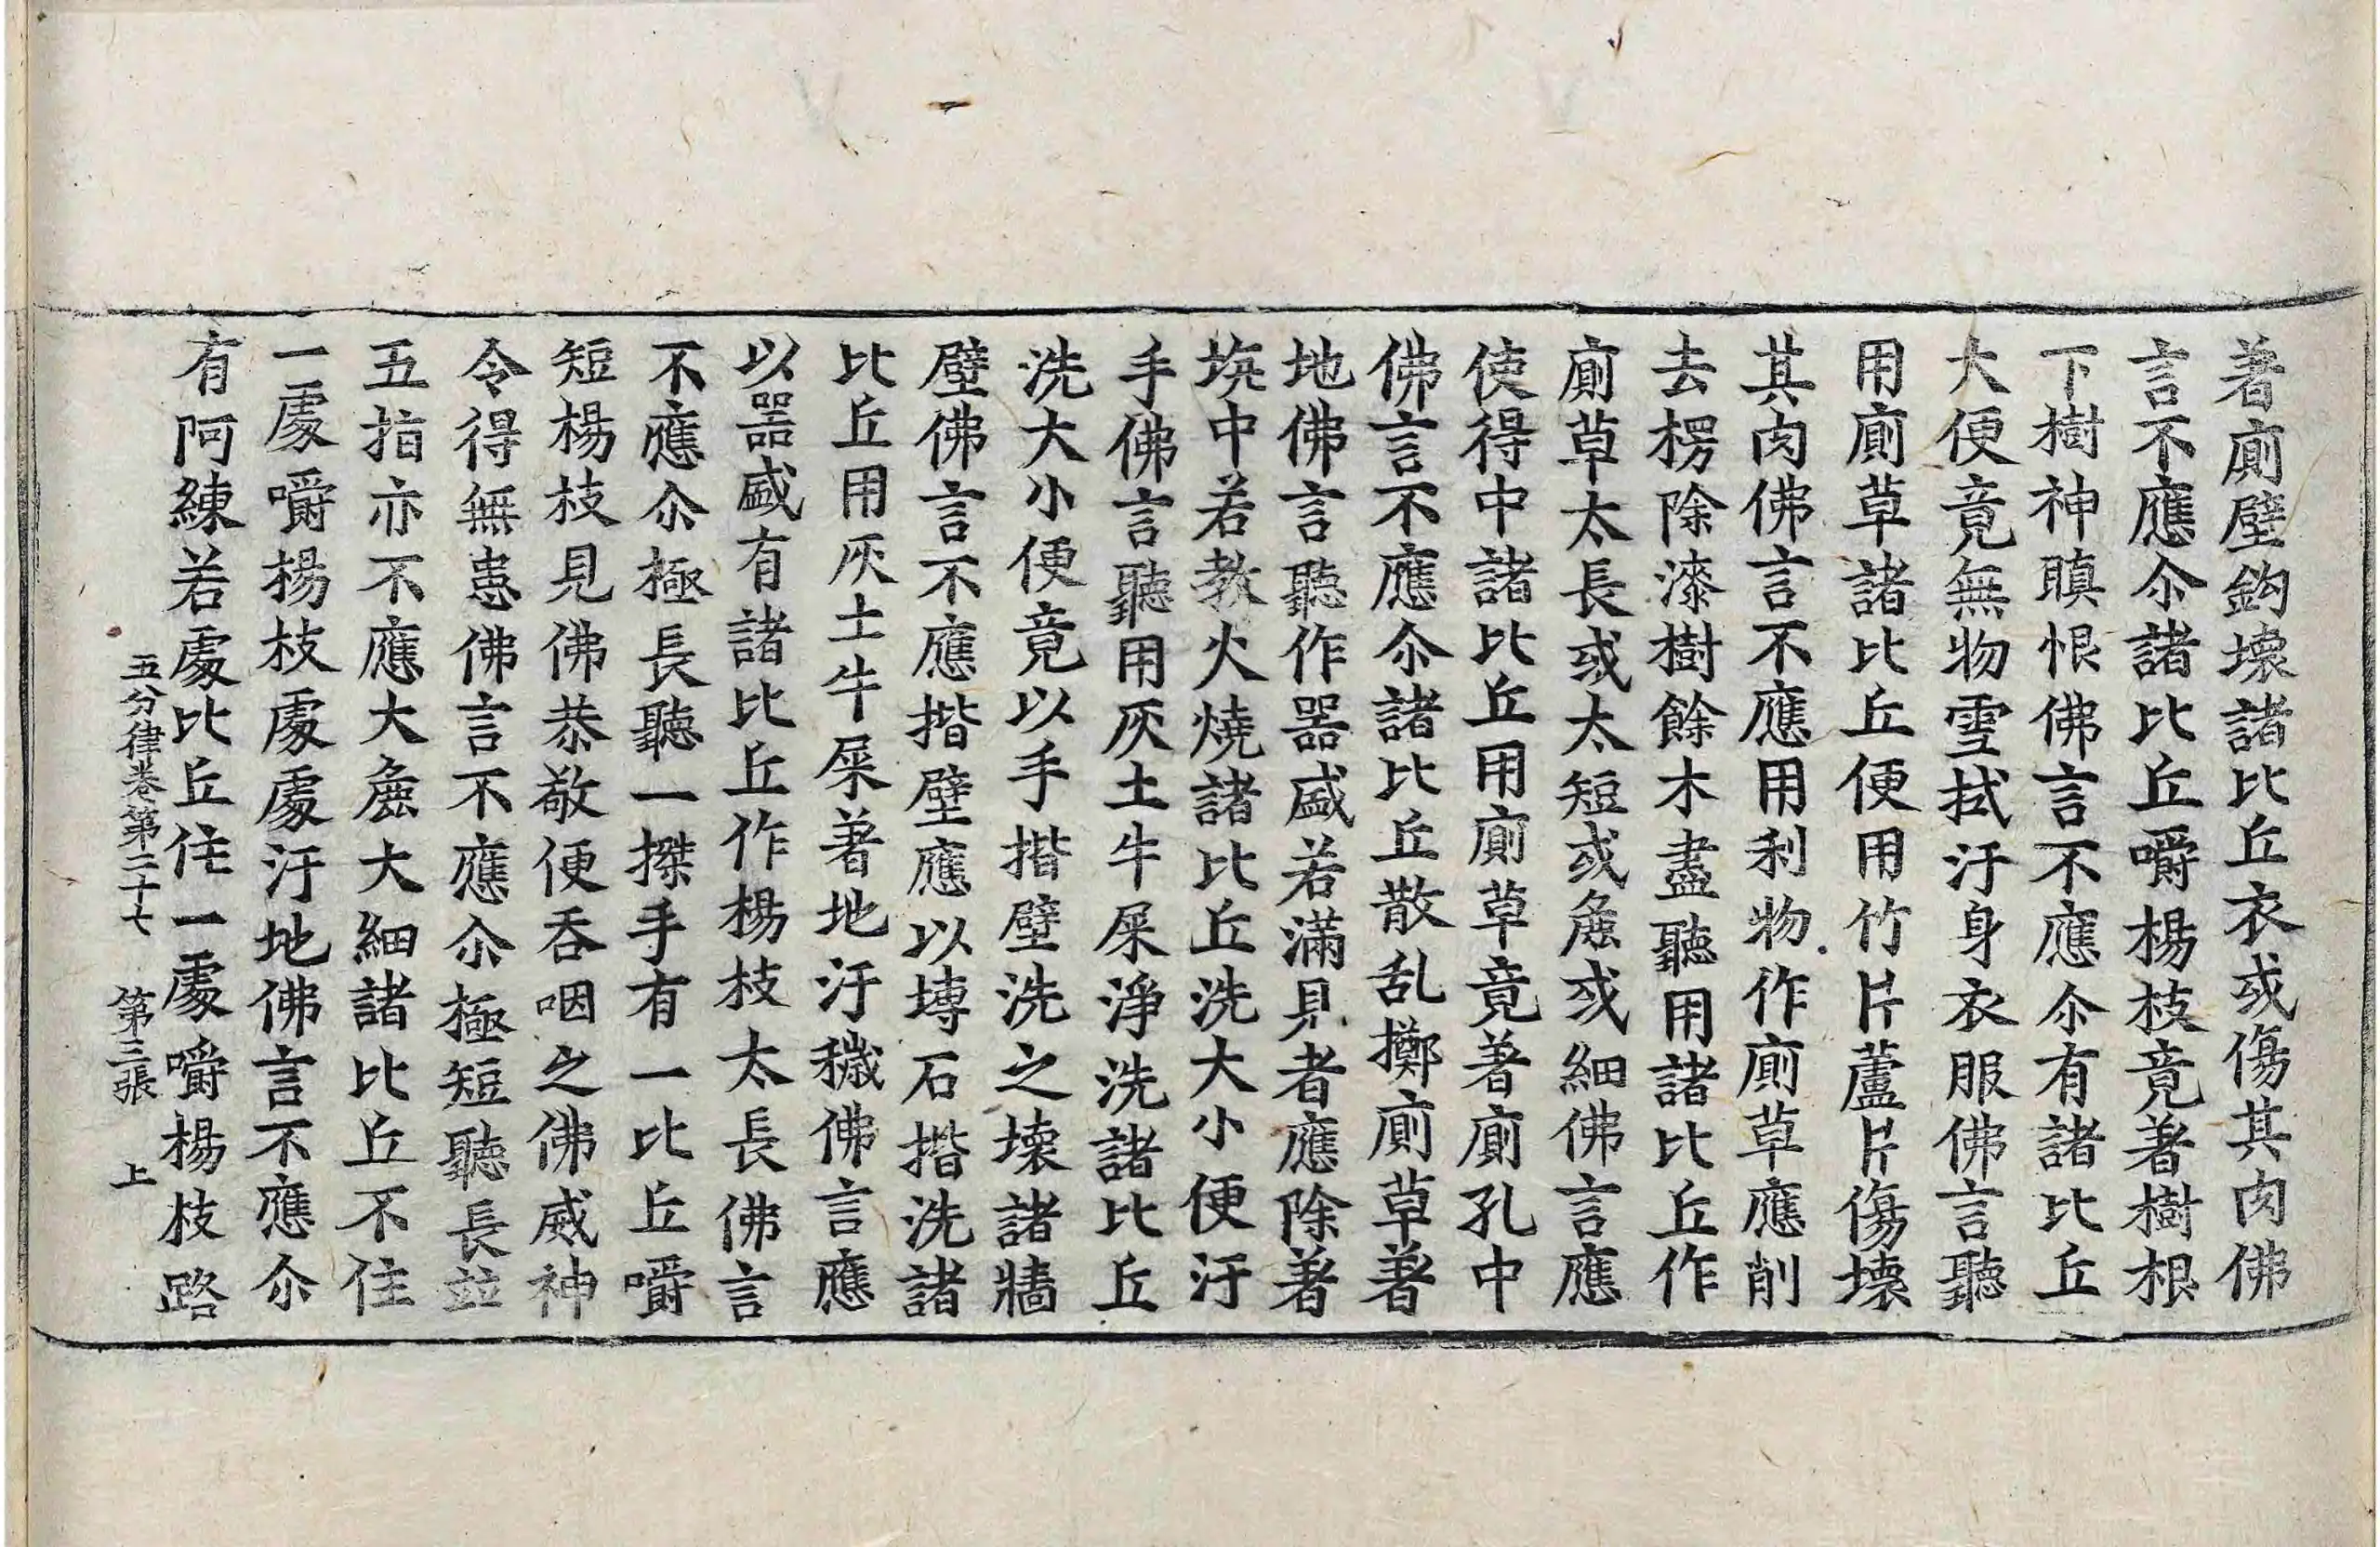 著廁壁鈎壞諸比丘衣或傷其肉佛
言不應尒諸比丘嚼楊枝竟著樹根
下樹神瞋恨佛言不應尒有諸比丘
大便竟無物雪拭汙身衣服佛言聽
用廁草諸比丘便用竹片蘆片傷壞
其肉佛言不應用利物作廁草應削
去楞除漆樹餘木盡聽用諸比丘作
廁草太長或太短或麁或細佛言應
使得中諸比丘用廁草竟著廁孔中
佛言不應尒諸比丘散乱擲廁草著
地佛言聽作器盛若滿見者應除著
坑中若教火燒諸比丘洗大小便汙
手佛言聽用灰土牛屎淨洗諸比丘
洗大小便竟以手揩壁洗之壞諸牆
壁佛言不應揩壁應以塼石揩洗諸
比丘用灰土牛屎著地汙穢佛言應
以器盛有諸比丘作楊枝太長佛言
不應尒極長聽一搩手有一比丘嚼
短楊枝見佛恭敬便吞咽之佛威神
令得無患佛言不應尒極短聽長並
五指亦不應大麁大細諸比丘不住
一處嚼楊枝處處汙地佛言不應尒
有阿練若處比丘住一處嚼楊枝路
五分律卷第二十七 第三張 上